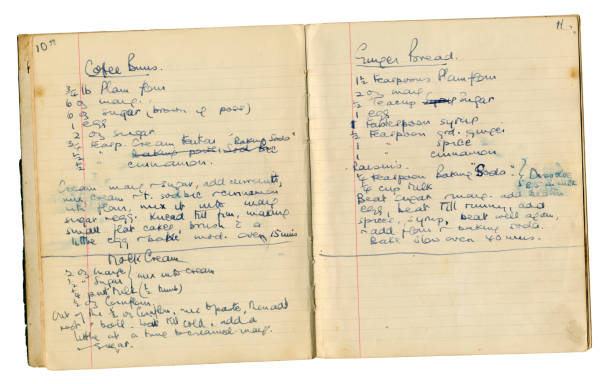 10
Coffee Buns.
3/4 lb Plain flour
6 oz marg.
6 oz sugar (brown if poss)
1 egg
2 oz sugar
Teasp. Cream Tartar "Baking Soda"
cinnamon.
Cream marg & sugar, add currants,
mix cream t. sod bic & cinnamon
into flour, mix it into marg
sugar & egg. Knead till firm, making
small flat cakes, brush
little egg & bake mod. oven 15 mins
Mock Cream
2 oz marg } mix into cream
1 " sugar
1/4 pint milk (1/2 )
1/2 oz Cornflour.
Out of the cornflour, mix to paste, then add
& boil. Wait till cold, add a
little at a time to creamed marg.
& sugar.
11.
Ginger Bread.
1 1/2 teaspoons Plain flour
2 oz marg
1/2 Teacup sugar
1 egg
1 Tablespoon syrup
1/2 Teaspoon grd. ginger
1 " spice
1 " cinnamon
Raisins.
1/2 teaspoon Baking Soda
1/4 cup milk
Beat sugar & marg. add
egg, beat till runny, add
spice, syrup, beat well again,
& add flour & baking soda.
Bake slow oven 40 mins.